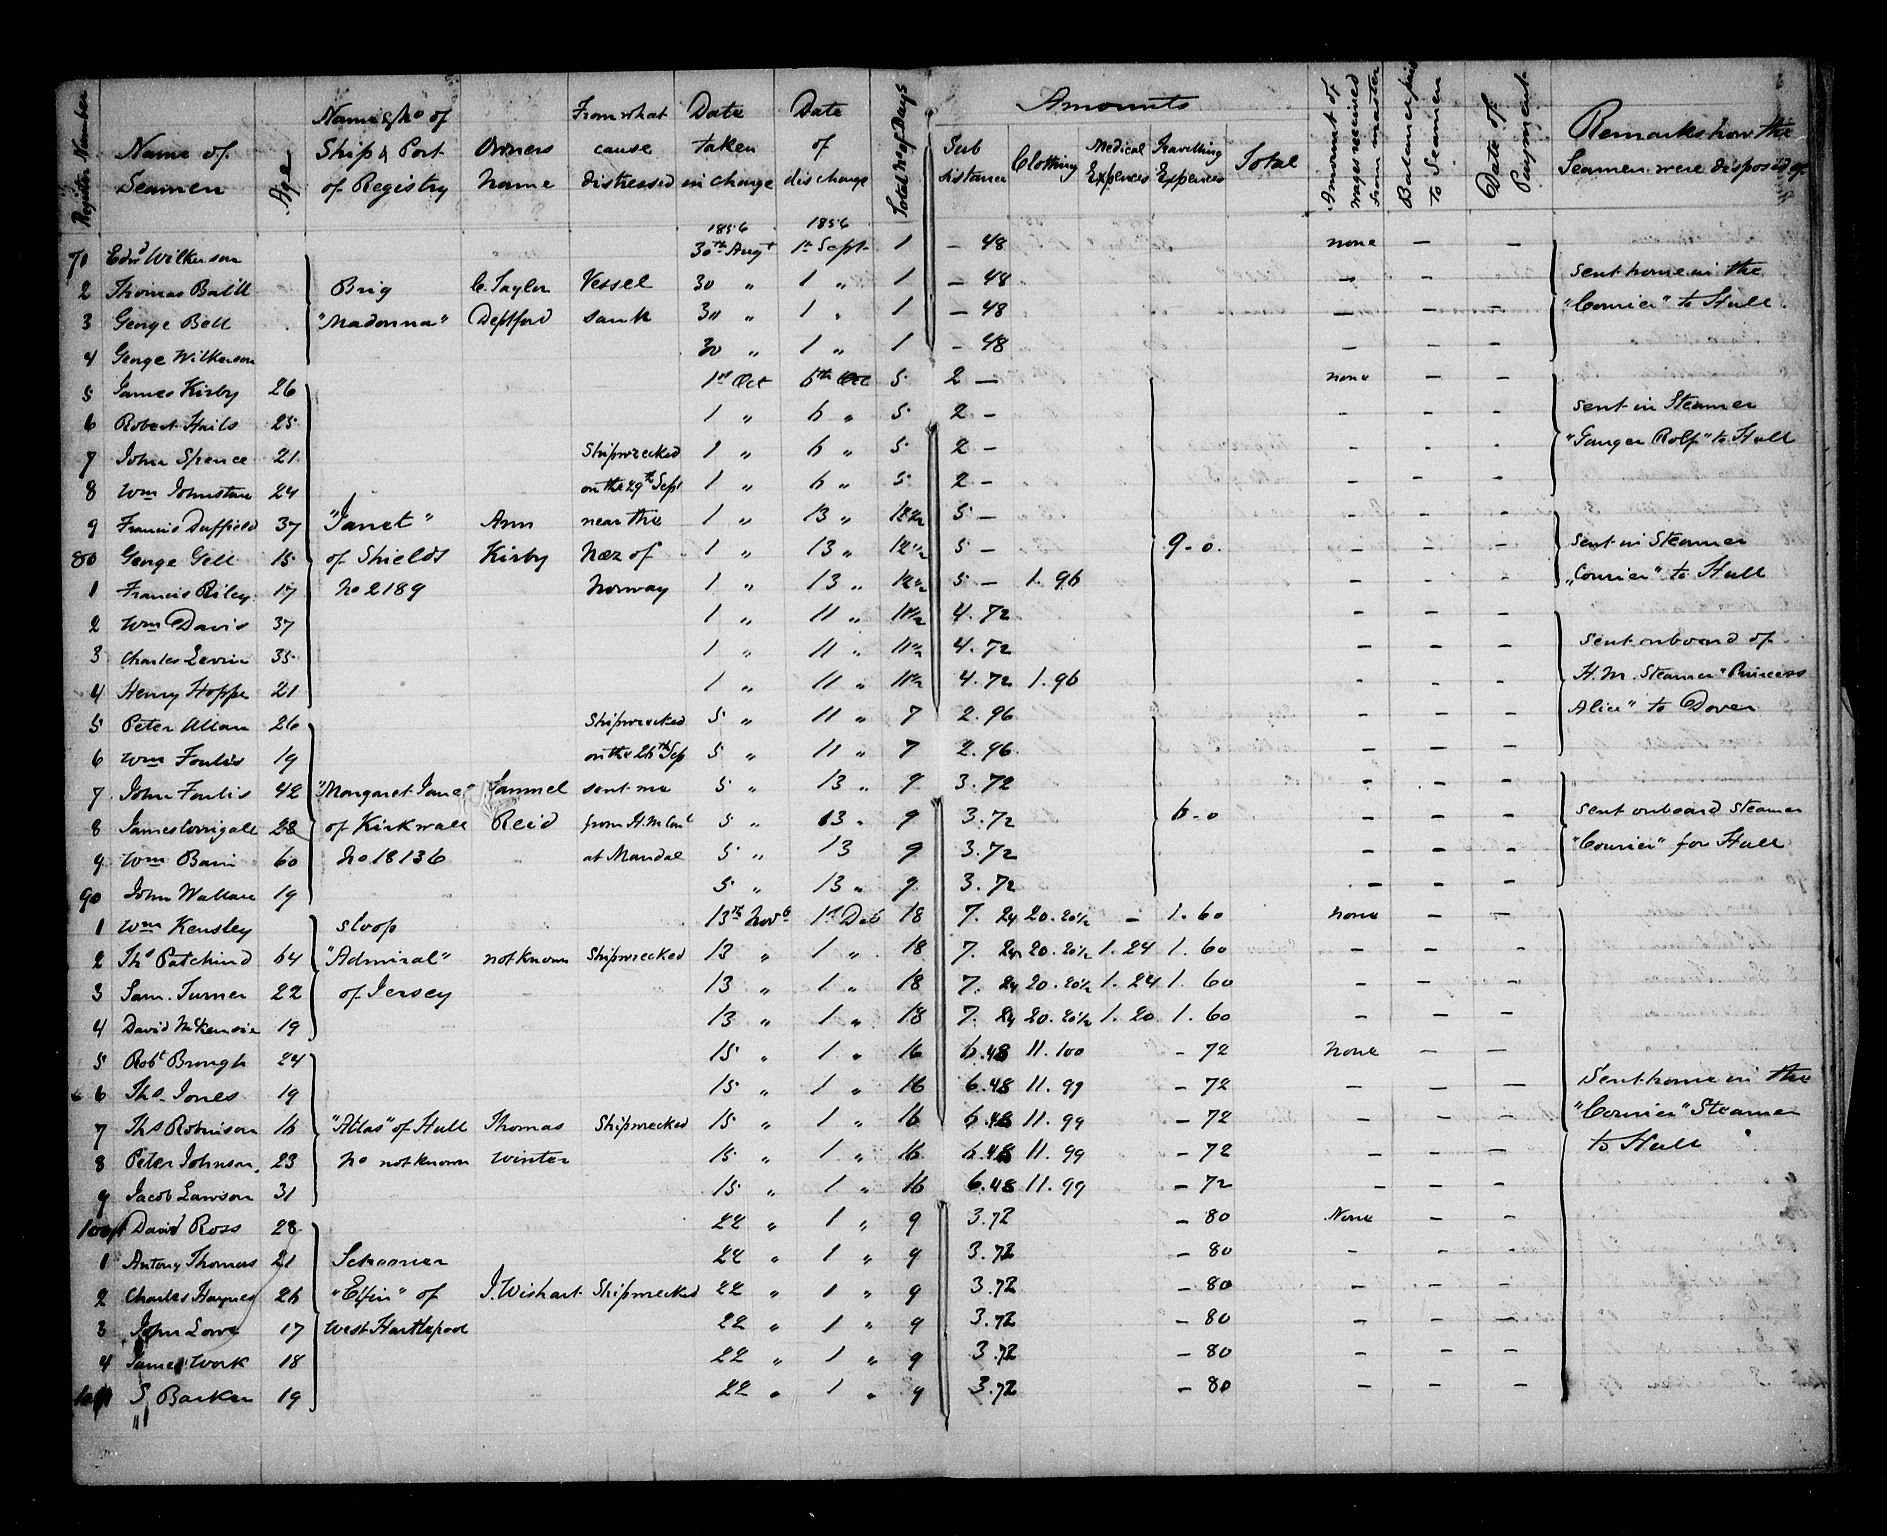 Register Number | Name of Seamen | Age | Name & No of Ship & Port of Registry | Owners Name | From what cause distressed | Date taken in charge | Date of discharge | Total No of Days | Amounts: Subsistance | Clothing | Medical Expences | Travelling Expences | Total | Amount of wages received from master | Balance paid to Seamen | Date of Payment | Remarks how the Seamen were disposed of
1856 | 1856
71 Edwd Wilkerson | 30th Augt | 1st Sept | 1 | – 48 | none | – | –
2 Thomas | Brig | C. Taylor | Vessel | 30 " | 1 " | 1 | – 48 | – | sent home in the
3 George Bell | "Madonna" | Deptford | sank | 30 " | 1 " | 1 | – 48 | – | – | – | "Courier" to Hull
4 George Wilkerson | 30 " | 1 " | 1 | – 48 | – | – | –
5 James Kirby | 26 | 1st Oct | 6th Oct | 5 | 2 – | none | – | –
6 Robert Hails | 25 | 1 " | 6 " | 5 | 2 – | – | – | – | sent in Steamer
7 John Spence | 21 | Shipwrecked | 1 " | 6 " | 5 | 2 – | – | – | – | "Ganger Rolf" to Hull
8 Wm Johnstone | 24 | on the 29th Sept | 1 " | 6 " | 5 | 2 – | – | – | –
9 Francis Duffield | 37 | "Janet" | Ann | near the | 1 " | 13 " | 12 1/2 | 5 – | – | – | –
80 George Gell | 15 | of Shields | Kirby | Næz of | 1 " | 13 " | 12 1/2 | 5 – | 9 . 0 . | – | – | – | sent in Steamer
1 Francis Riley | 17 | No 2189 | Norway | 1 " | 13 " | 12 1/2 | 5 – | 1. 96 | – | – | – | "Courier" to Hull
2 Wm Davis | 37 | 1 " | 11 " | 11 1/2 | 4. 72 | – | – | –
3 Charles Levin | 35 | 1 " | 11 " | 11 1/2 | 4. 72 | – | – | – | sent onboard of
4 Henry Hoppe | 21 | 1 " | 11 " | 11 1/2 | 4. 72 | 1. 96 | – | – | – | H. M. Steamer "Princess
5 Peter Allan | 26 | Shipwrecked | 5 " | 11 " | 7 | 2. 96 | – | – | – | Alice" to Dover
6 Wm Foulis | 19 | on the 26th Sep | 5 " | 11 " | 7 | 2. 96. | – | – | –
7 John Foulis | 42 | "Margaret Jane" | Sammel | sent me | 5 " | 13 " | 9 | 3. 72 | – | – | –
8 James Corrigall | 28 | of Kirkwall | Reid | from H. M Conl | 5 " | 13 " | 9 | 3. 72 | 6 . 0 | – | – | – | sent onboard Steamer
9 Wm Bain | 60 | No 18136 | at Mandal | 5 " | 13 | 9 | 3. 72 | – | – | – | "Courier" for Hull
90 John Wallace | 19 | 5 " | 13 " | 9 | 3. 72 | – | – | –
1 Wm Kensley | sloop | 13th Novb | 1st Deb | 18 | 7. 24 | 20. 20 1/2 | – | 1. 60 | none | – | –
2 Ths Patchind | 64 | "Admiral" | not known | Shipwrecked | 13 " | 1 " | 18 | 7. 24 | 20. 20 1/2 | 1. 24 | 1. 60 | – | – | –
3 Sam. Turner | 22 | of Jersey | 13 " | 1 " | 18 | 7. 24 | 20. 20 1/2 | 1. 24 | 1. 60 | – | – | –
4 David McKensie | 19 | 13 " | 1 " | 18 | 7. 24 | 20. 20 1/2 | 1. 20 | 1. 60 | – | – | –
5 Robt Brough | 24 | 15 " | 1 " | 16 | 6.48 | 11. 100 | – 72 | none | – | –
6 Ths Jones | 19 | 15 " | 1 " | 16 | 6.48 | 11. 99 | – 72 | – | – | – | Sent home in the
7 Ths Robinson | 16 | "Atlas" of Hull | Thomas | Shipwrecked | 15 " | 1 " | 16 | 6.48 | 11. 99 | – 72 | – | – | – | "Courier" Steamer
8 Peter Johnson. | 23 | No not known | Winter | 15 " | 1 " | 16 | 6.48 | 11. 99 | – 72 | – | – | – | to Hull
9 Jacob Lawson | 31 | 15 " | 1 " | 16 | 6.48 | 11. 99 | – 72 | – | – | –
100 David Ross | 28 | 22 " | 1 " | 9 | 3.72 | – 80 | None | – | –
1 Antony Thomas | 21 | Schooner | 22 " | 1 " | 9 | 3.72 | – 80 | – | – | –
2 Charles Haynes | 26 | "Elfin" of | J. Wishart | Shipwrecked | 22 " | 1 " | 9 | 3.72 | – 80 | – | – | –
3 John Lowe | 17 | West Hartlepool | 22 " | 1 " | 9 | 3.72 | – 80 | – | – | –
4 James Work | 18 | 22 " | 1 " | 9 | 3.72 | – 80 | – | – | –
S Barker | 19 | 22 " | 1 " | 9 | 3.72 | – 80 | – | – | –